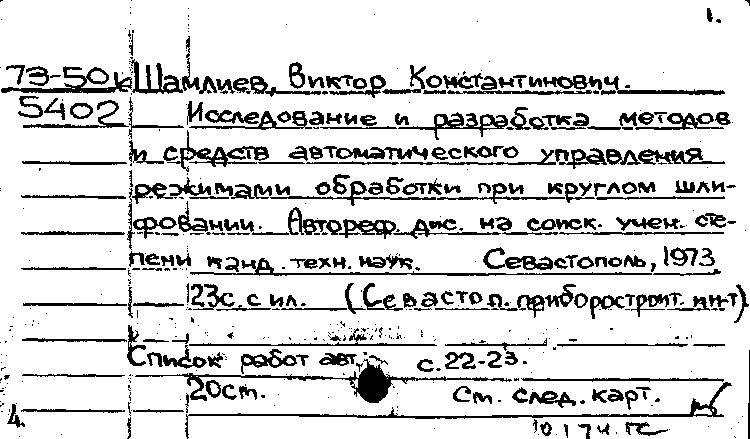 1.
73-50к Шамлиев, Виктор Константинович.
5402 Исследование и разработка методов
и средств автоматического управления
режимами обработки при круглом шли-
фовании. Автореф. дис. на соиск. учен. сте-
пени канд. техн. наук. Севастополь, 1973.
23с. с ил. (Севастоп. приборостроит. ин-т)
Список работ авт. с. 22-23.
20cm. См. след. карт.
4.